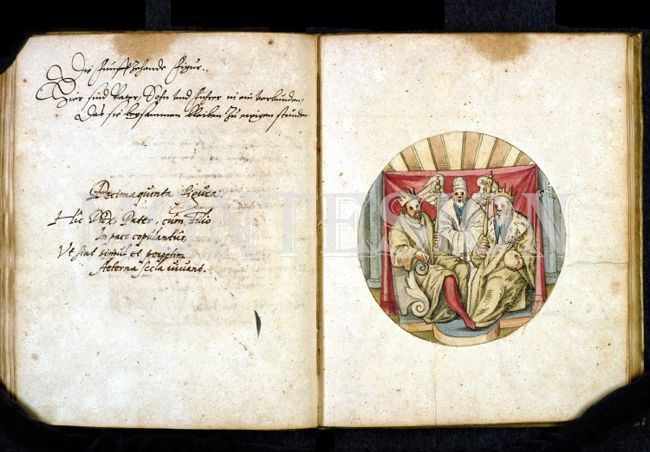 Die fünffzehende Figur.
Hier sind Vater, Sohn und führer in ein verbunden,
Das sie beysammen bleiben zu ewigen stunden
Decimaquinta Figura.
Hic Pater, cum Filio
In pace copulantur,
Ut sint simul et
Aeterna secla vivant.